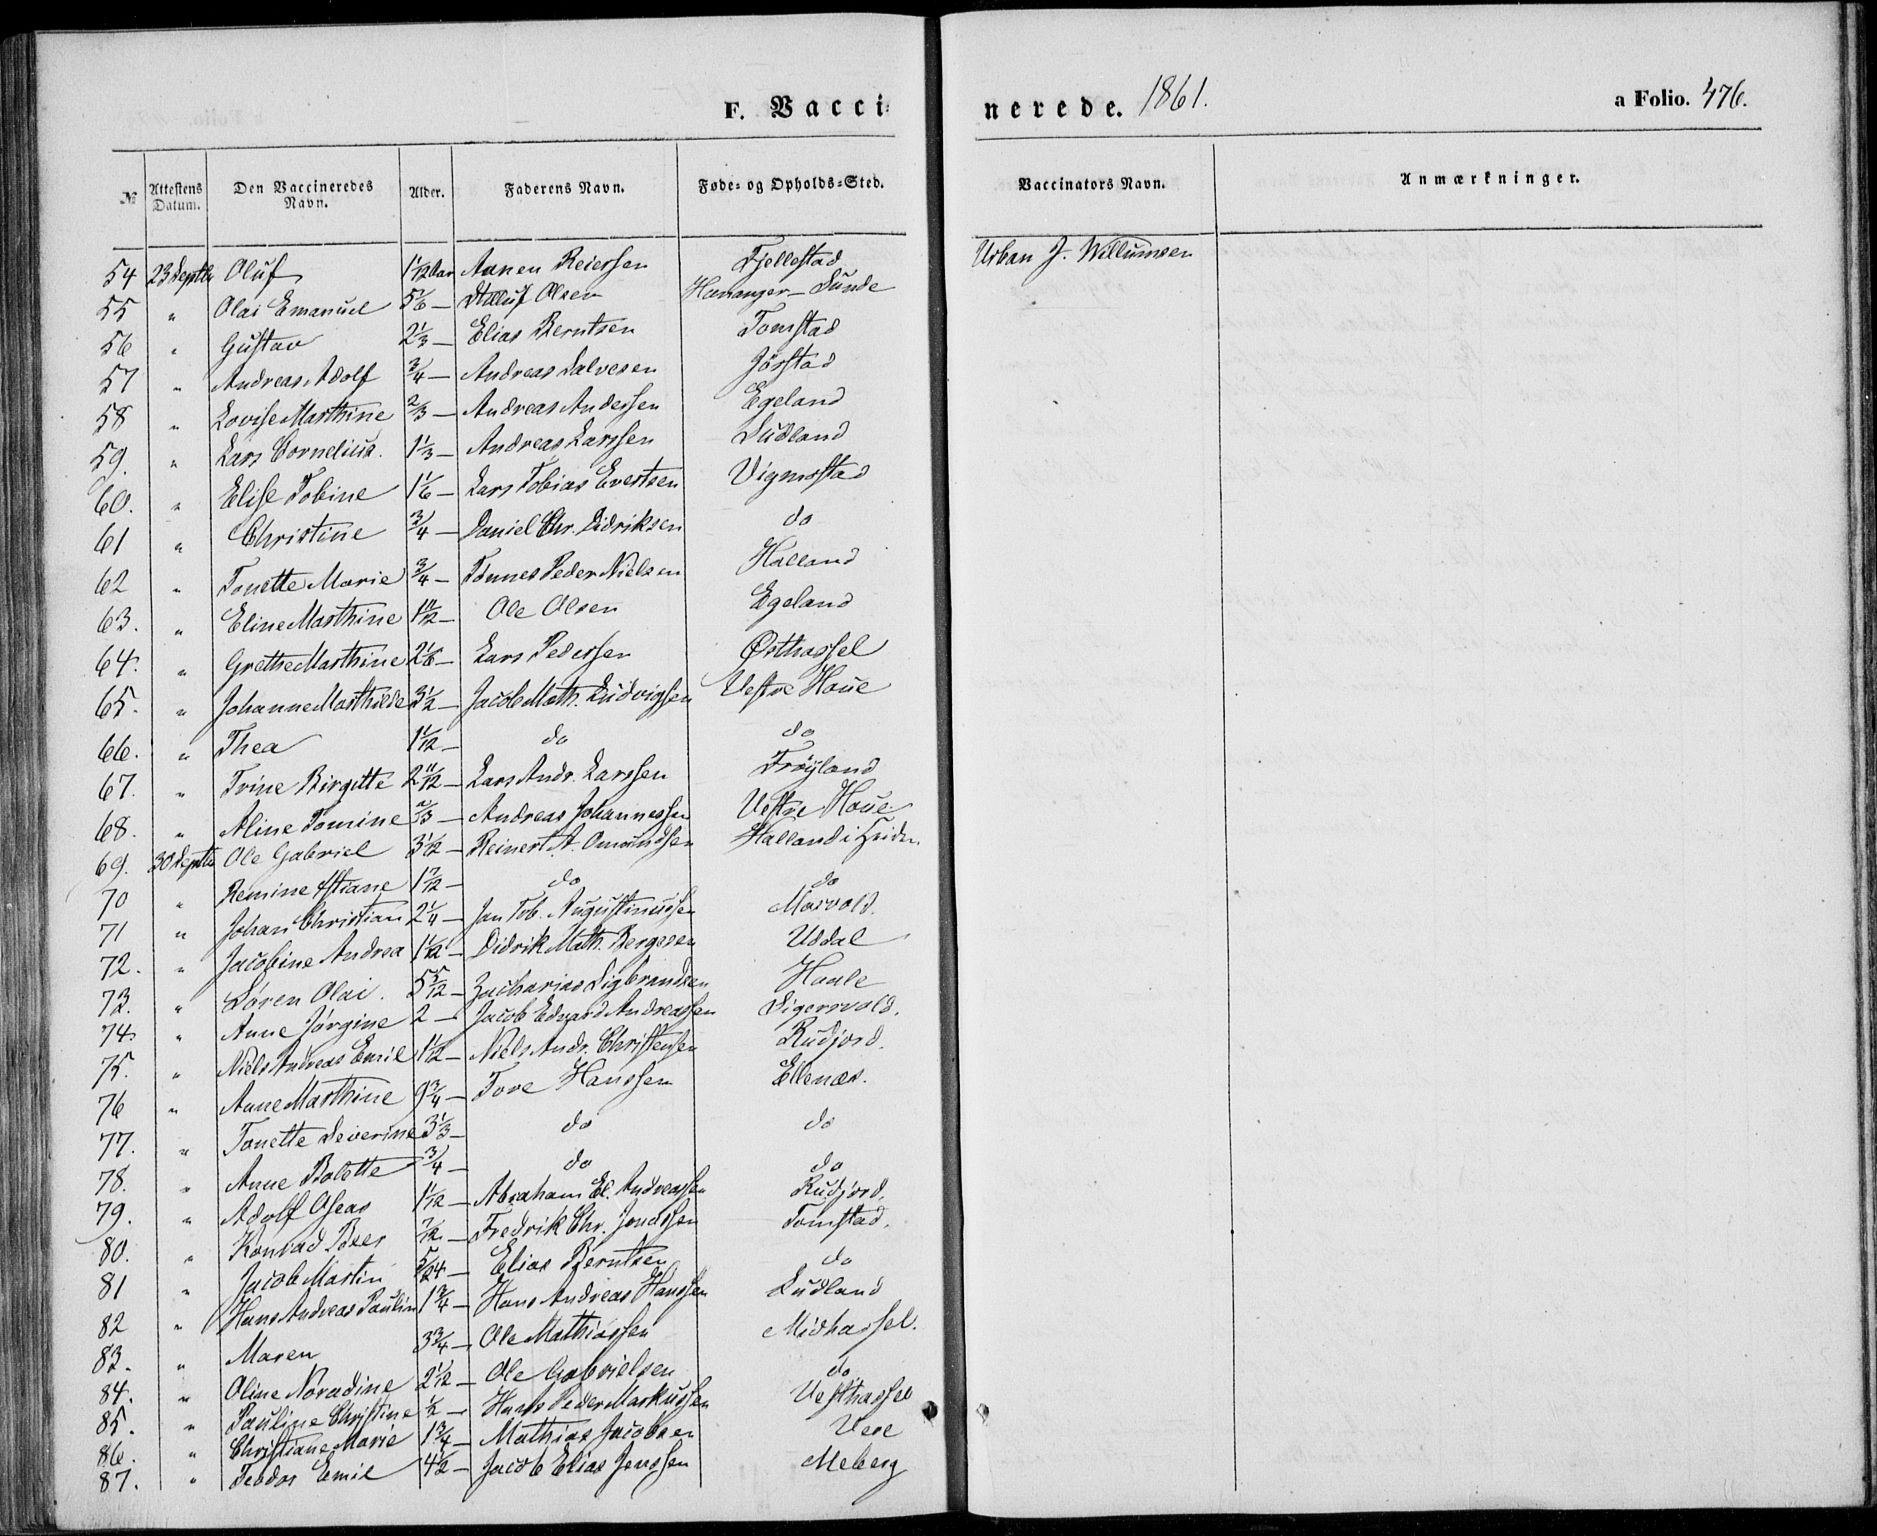 F. Vaccinerede. 1861. a Folio. 476.
№ | Attestens Datum. | Den Vaccineredes Navn. | Alder. | Faderens Navn. | Føde- og Opholds-Sted. | Vaccinators Navn. | Anmærkninger.
54 23 Septbr Oluf 1 1/12 Aar Aanen Reiersen Fjellestad Urban J. Willumsen
55 " Olai Emanuel 5 5/6 — Olsen Havanger-Sunde
56 " Gustav 2 1/3 — Elias Berntsen Tomstad
57 " Andreas Adolf 3/4 — Andreas Salvesen Jørstad
58 " Lovise Marthine 2/3 — Andreas Andersen Egeland
59. " Lars Cornelius. 1 1/3 — Andreas Larssen Sudland
60. " Elise Tobine 1 1/6 — Lars Tobias Evertsen Vigmostad
61 " Christine 3/4 — Daniel Chr. Didriksen do
62 " Tonette Marie 3/4 — Tønnes Peder Nielsen Halland
63. " Eline Marthine 1 11/12 — Ole Olsen Egeland
64. " Grethe Marthine 2 1/6 — Lars Pedersen Østhassel
65. " Johanne Marthilde 3 1/2 — Jacob Math. Ludvigsen Vestre Houe
66. " Thea 1 1/12 — do do
67. " Trine Birgitte 2 11/12 — Lars Andr. Larssen Frøyland
68. " Aline Tomine 2/3 — Andreas Johannessen Vestre Houe
69. 30 Septbr Ole Gabriel 3 1/12 — Reinert A. Omundsen Halland i Hidr.
70 " Remine Stiane 1 7/12 — do do
71 " Johan Christian 2 1/4 — Jan Tob. Augustinussen Mosvold.
72. " Jacobine Andrea 1 1/12 — Didrik Math. Bergesen Uddal
73. " Søren Olai. 5 5/12 — Zacharias Sigbrandsen Haale
74. " Anne Jørgine 2 — Jacob Edvard Andreassen Sigersvold.
75. " Niels Andreas Emil 1 1/2 — Niels Andr. Christensen Rudjord.
76 " Anne Marthine 9 3/4 — Tore Hanssen Ellenæs.
77. " Tonette Severine 3 1/3 — do do
78. " Anne Bolette 3/4 — do do
79. " Adolf Oseas 1 1/12 — Abraham El. Andreassen Rudjord.
80. " Konrad Beer 7/12 — Fredrik Chr. Jonassen Tomstad.
81 " Jacob Martin 5/24 — Elias Berntsen do
82 " Hans Andreas Paulin 1 3/4 — Hans Andreas Hanssen Sudland
83. " Maren 3 3/4 — Ole Mathiassen Midhassel.
84. " Oline Noradine 2 1/12 — Ole Gabrielsen do
85. " Pauline Christine 1/2 — Hans Peder Markussen Vesthassel
86. " Christiane Marie 1 3/4 — Mathias Jacobsen Vere
87. " Teodor Emil 4 1/2 — Jacob Elias Jenssen Meberg